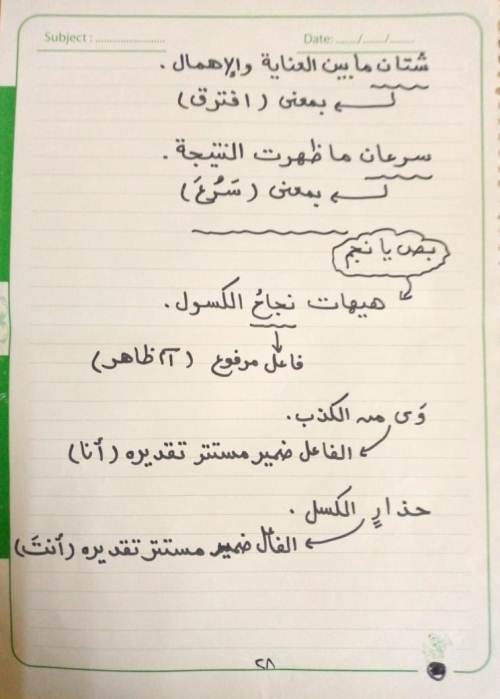 Subject : ........................ Date: ....../....../......
شتان ما بين العناية والإهمال .
بمعنى (افترق)
سرعان ما ظهرت النتيجة .
بمعنى (سَرُعَ)
بص يا نجم
هيهات نجاحُ الكسول .
فاعل مرفوع (اسم ظاهر)
وَى من الكذب .
الفاعل ضمير مستتر تقديره (أنا)
حذارِ الكسل .
الفاعل ضمير مستتر تقديره (أنتَ)
٢٨